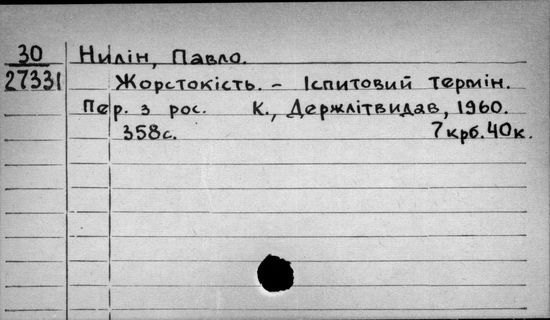 30 Нилін, Павло.
27331 Жорстокість. – Іспитовий термін.
Пер. з рос. К., Держлітвидав, 1960.
358с. 7крб.40к.